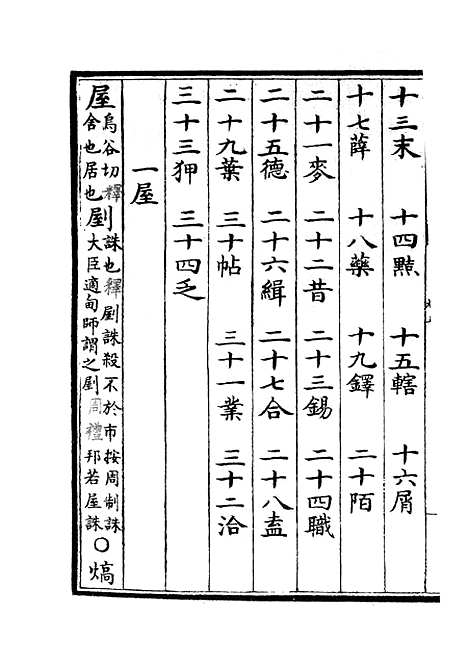 十三末　十四黠　十五轄　十六屑
十七薛　十八藥　十九鐸　二十陌
二十一麥　二十二昔　二十三錫　二十四職
二十五德　二十六緝　二十七合　二十八盍
二十九葉　三十帖　三十一業　三十二洽
三十三狎　三十四乏
一屋
屋烏谷切釋舍也居也剭誅也釋剭誅殺不於市按周制誅大臣適甸師謂之剭周禮邦若屋誅〇熇